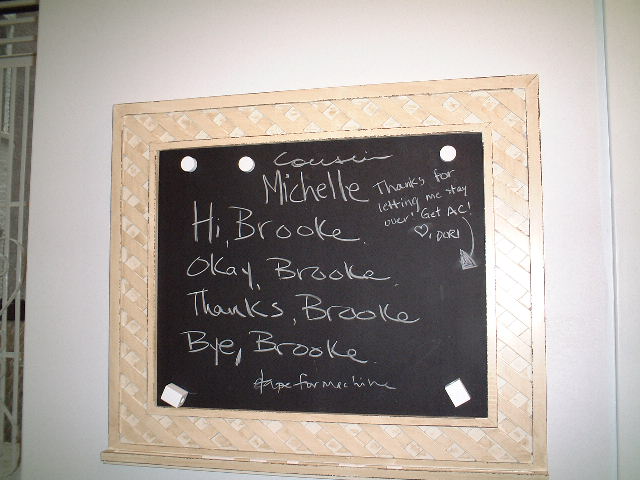 Cousin
Michelle
Thanks for
letting me stay
over! Get AC!
♡, DORI
Hi, Brooke.
Okay, Brooke.
Thanks, Brooke
Bye, Brooke.
for machine